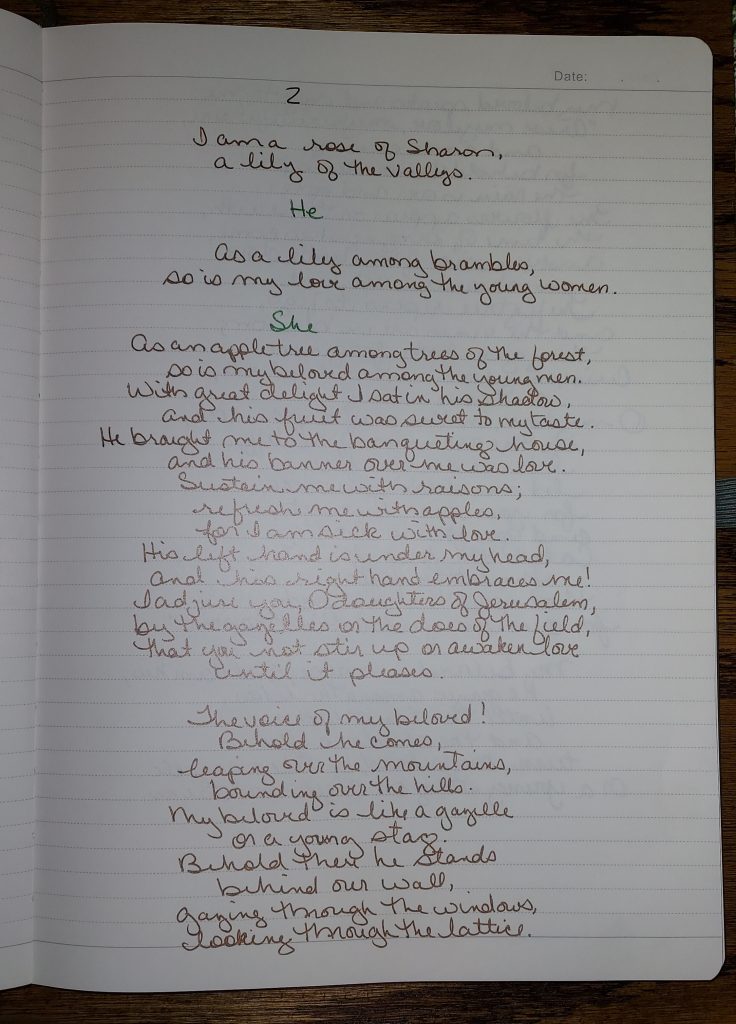 Date:
2
I am a rose of Sharon,
a lily of the valleys.
He
As a lily among brambles,
so is my love among the young women.
She
As an apple tree among trees of the forest,
so is my beloved among the young men.
With great delight I sat in his shadow,
and his fruit was sweet to my taste.
He brought me to the banqueting house,
and his banner over me was love.
Sustain me with raisons;
refresh me with apples,
for I am sick with love.
His left hand is under my head,
and his right hand embraces me!
I adjure you, O daughters of Jerusalem,
by the gazelles or the does of the field,
that you not stir up or awaken love
until it pleases.
The voice of my beloved!
Behold he comes,
leaping over the mountains,
bounding over the hills.
My beloved is like a gazelle
or a young stag.
Behold there he stands
behind our wall,
gazing through the windows,
looking through the lattice.